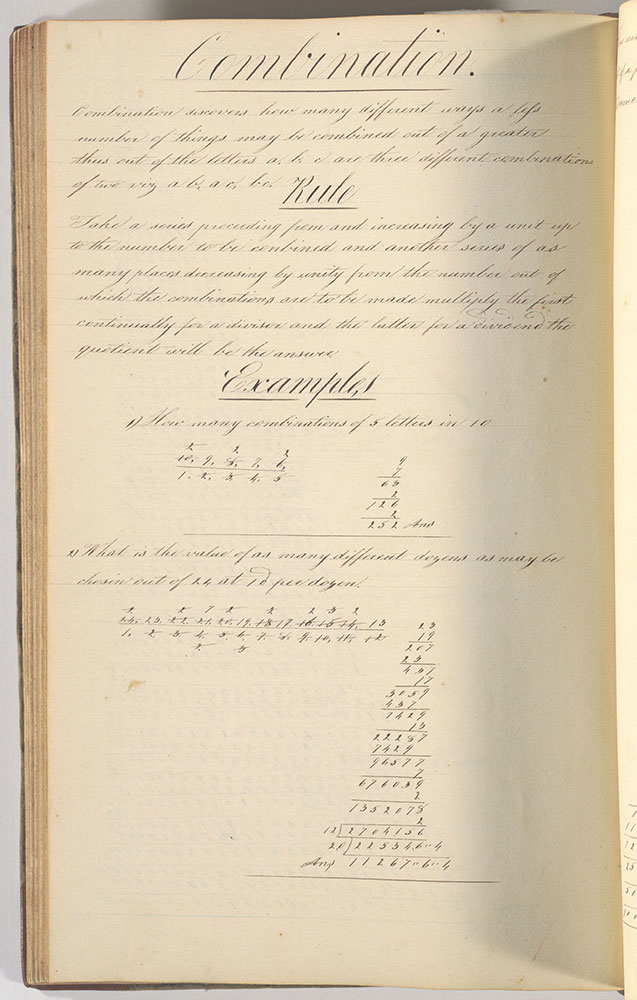 Combination.
Combination discovers how many different ways a less
number of things may be combined out of a greater
thus out of the letters a, b, c, are three different combinations
of two viz, a b, a c, b c,
Rule
Take a series proceeding from and increasing by a unit up
to the number to be conbined and another series of as
many places decreasing by unity from the number out of
which the combinations are to be made multiply the first
continually for a divisor and the latter for a dividend the
quotient will be the answer
Examples
1) How many combinations of 5 letters in 10
2 2 2
10, 9, 8, 7, 6,
1, 2, 3, 4, 5
9
7
63
2
126
2
252 Ans
2) What is the value of as many different dozens as may be
chosin out of 24 at 1d per dozen.
2 2 7 2 2 2 3 2
24, 23, 22, 21, 20, 19, 18 17 16, 15 14, 13
1, 2 3 4, 5 6 7, 8, 9 10, 11, 12
2 3
23
19
207
23
437
17
3059
437
7429
13
22287
7429
96577
7
676039
2
1352078
2
12)2704156
20)225346 " 4
Ans 11267 " 6 " 4